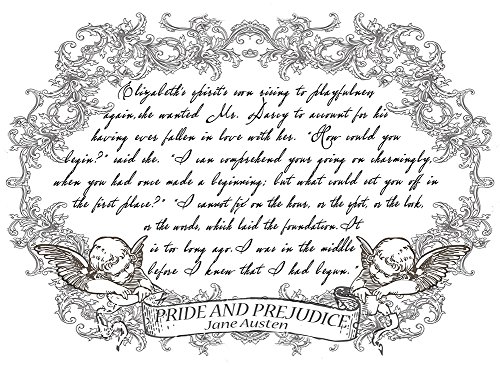 Elizabeth's spirit's soon rising to playfulness
again,she wanted Mr. Darcy to account for his
having ever fallen in love with her. "How could you
begin?" said she. "I can comprehend your going on charmingly,
when you had once made a beginning; but what could set you off in
the first place?" "I cannot fix on the hour, or the spot, or the look,
or the words, which laid the foundation.It
is too long ago. I was in the middle
before I knew that I had begun."
PRIDE AND PREJUDICE
Jane Austen